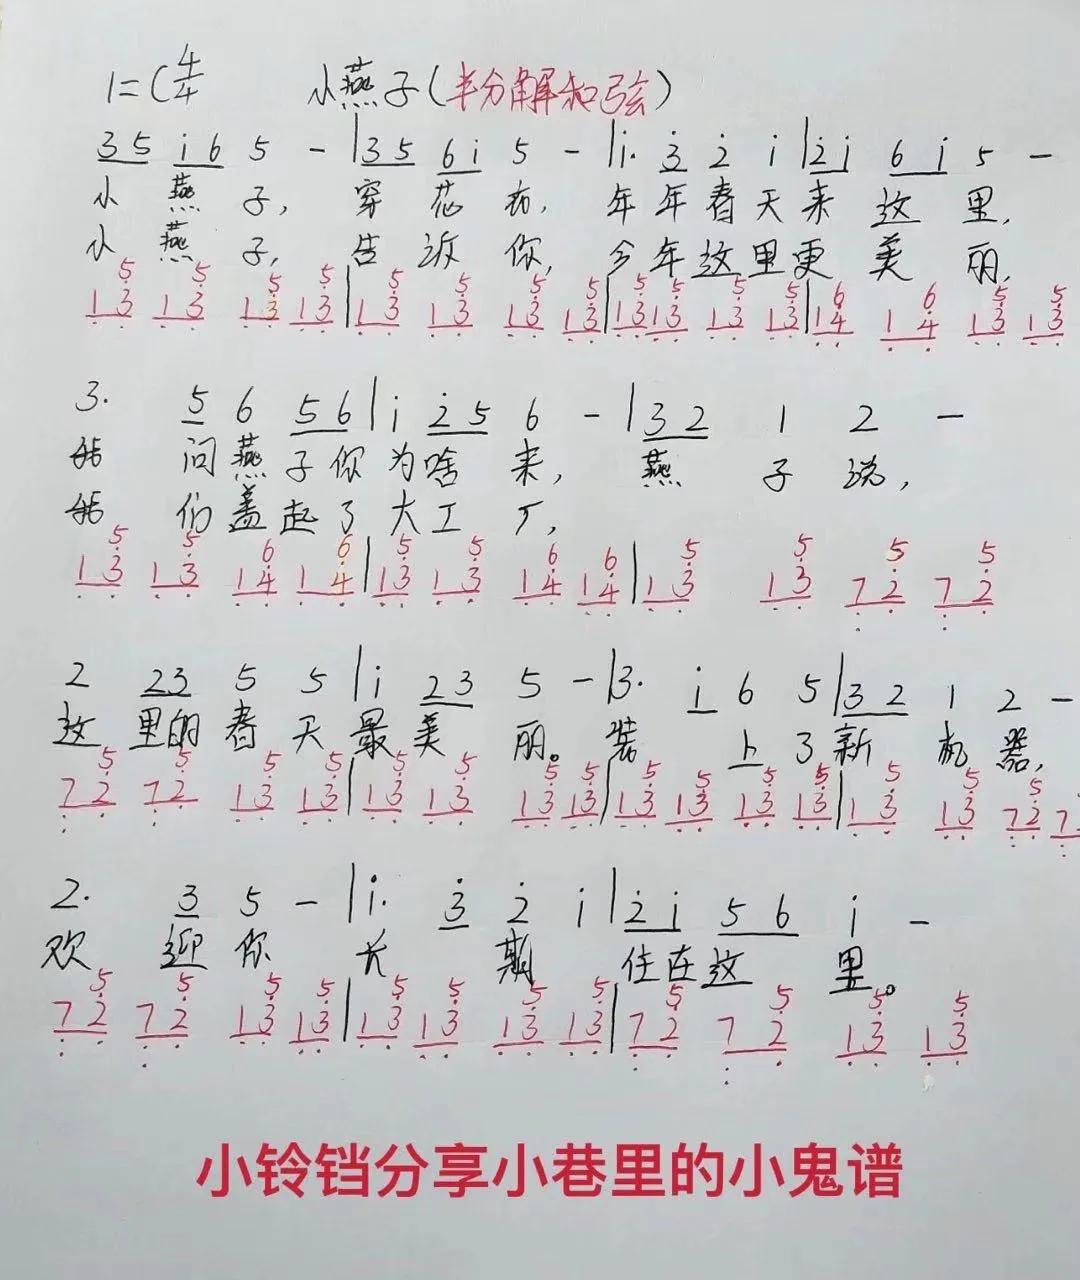 1=C 4/4 小燕子(半分解和弦)
35 i6 5 - | 35 6i 5 - | i· 3 2 i | 2i 6 i 5 -
小 燕 子, 穿 花 衣, 年 年 春 天 来 这 里,
小 燕 子, 告 诉 你, 今 年 这 里 更 美 丽,
5 5 5 5 5 5 5 5 5 5 5 5 6 6 5 5
13 13 13 13 | 13 13 13 13 | 13 13 13 13 | 14 14 13 13
3· 5 6 56 | i 25 6 - | 32 1 2 -
我 问 燕 子 你 为 啥 来, 燕 子 说,
我 们 盖 起 了 大 工 厂,
5 5 6 6 5 5 6 6 5 5 5 5
13 13 14 14 | 13 13 14 14 | 13 13 72 72
2 23 5 5 | i 23 5 - | 3· i 6 5 | 32 1 2 -
这 里的 春 天 最 美 丽。 装 上 了 新 机 器,
5 5 5 5 5 5 5 5 5 5 5 5 5 5 5
72 72 13 13 | 13 13 13 13 | 13 13 13 13 | 13 13 72 7
2· 3 5 - | i· 3 2 i | 2i 56 i -
欢 迎 你 长 期 住 在 这 里。
5 5 5 5 5 5 5 5 5 5 5 5
72 72 13 13 | 13 13 13 13 | 72 72 13 13
小铃铛分享小巷里的小鬼谱